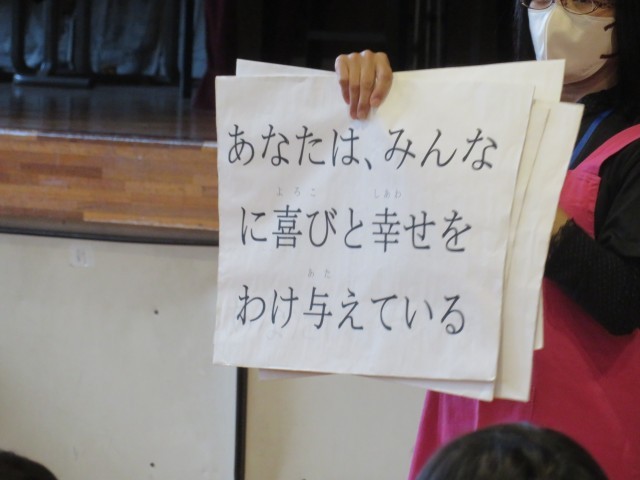 あなたは、みんな
よろこ しあわ
に喜びと幸せを
あた
わけ与えている